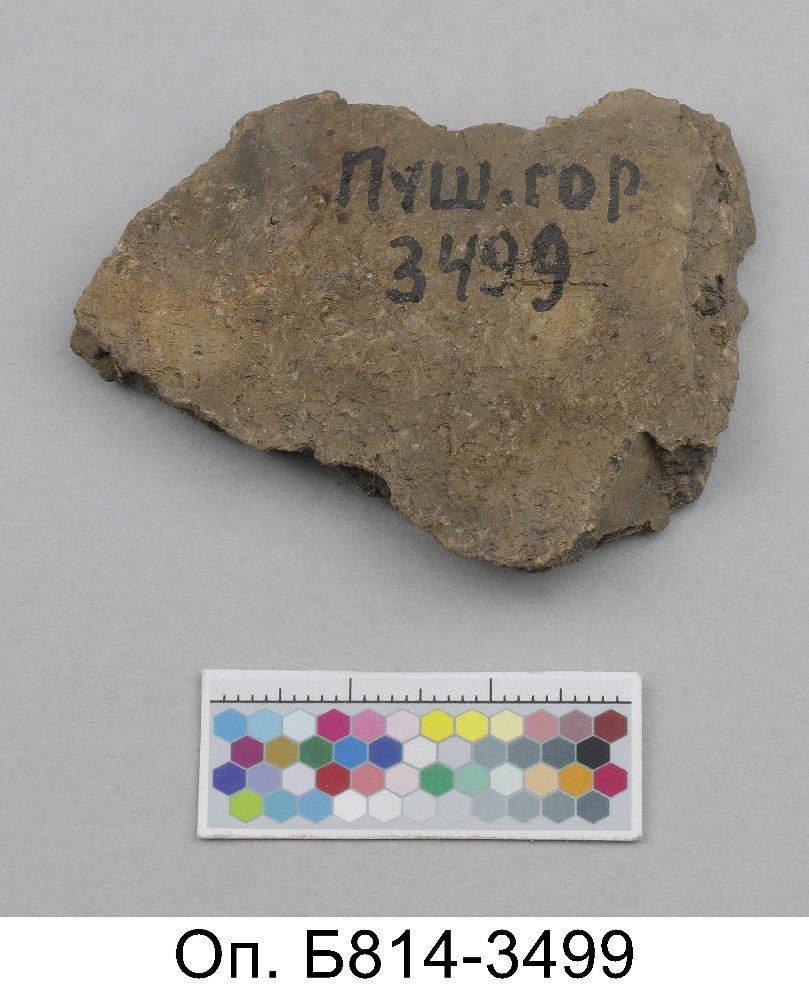 Пуш.гор
3499
Оп. Б814-3499